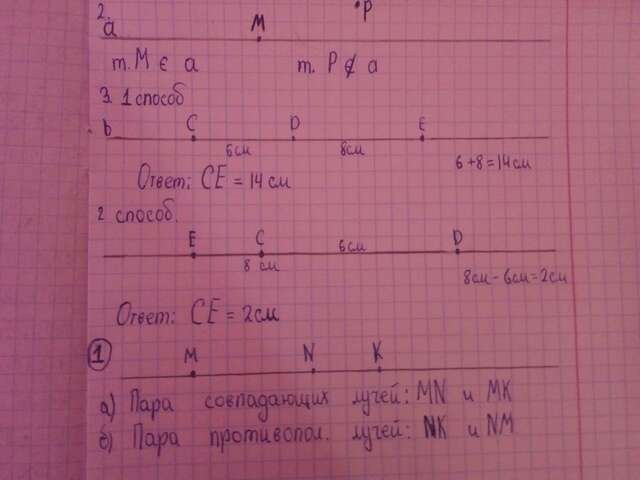 2.
P
a M
т. M ∈ a т. P ∉ a
3. 1 способ
b C D E
6см 8см
6+8=14см
Ответ: CE = 14 см
2 способ.
E C 6см D
8 см
8см - 6см = 2см
Ответ: CE = 2см
1 M N K
а) Пара совпадающих лучей: MN и MK
б) Пара противопол. лучей: NK и NM